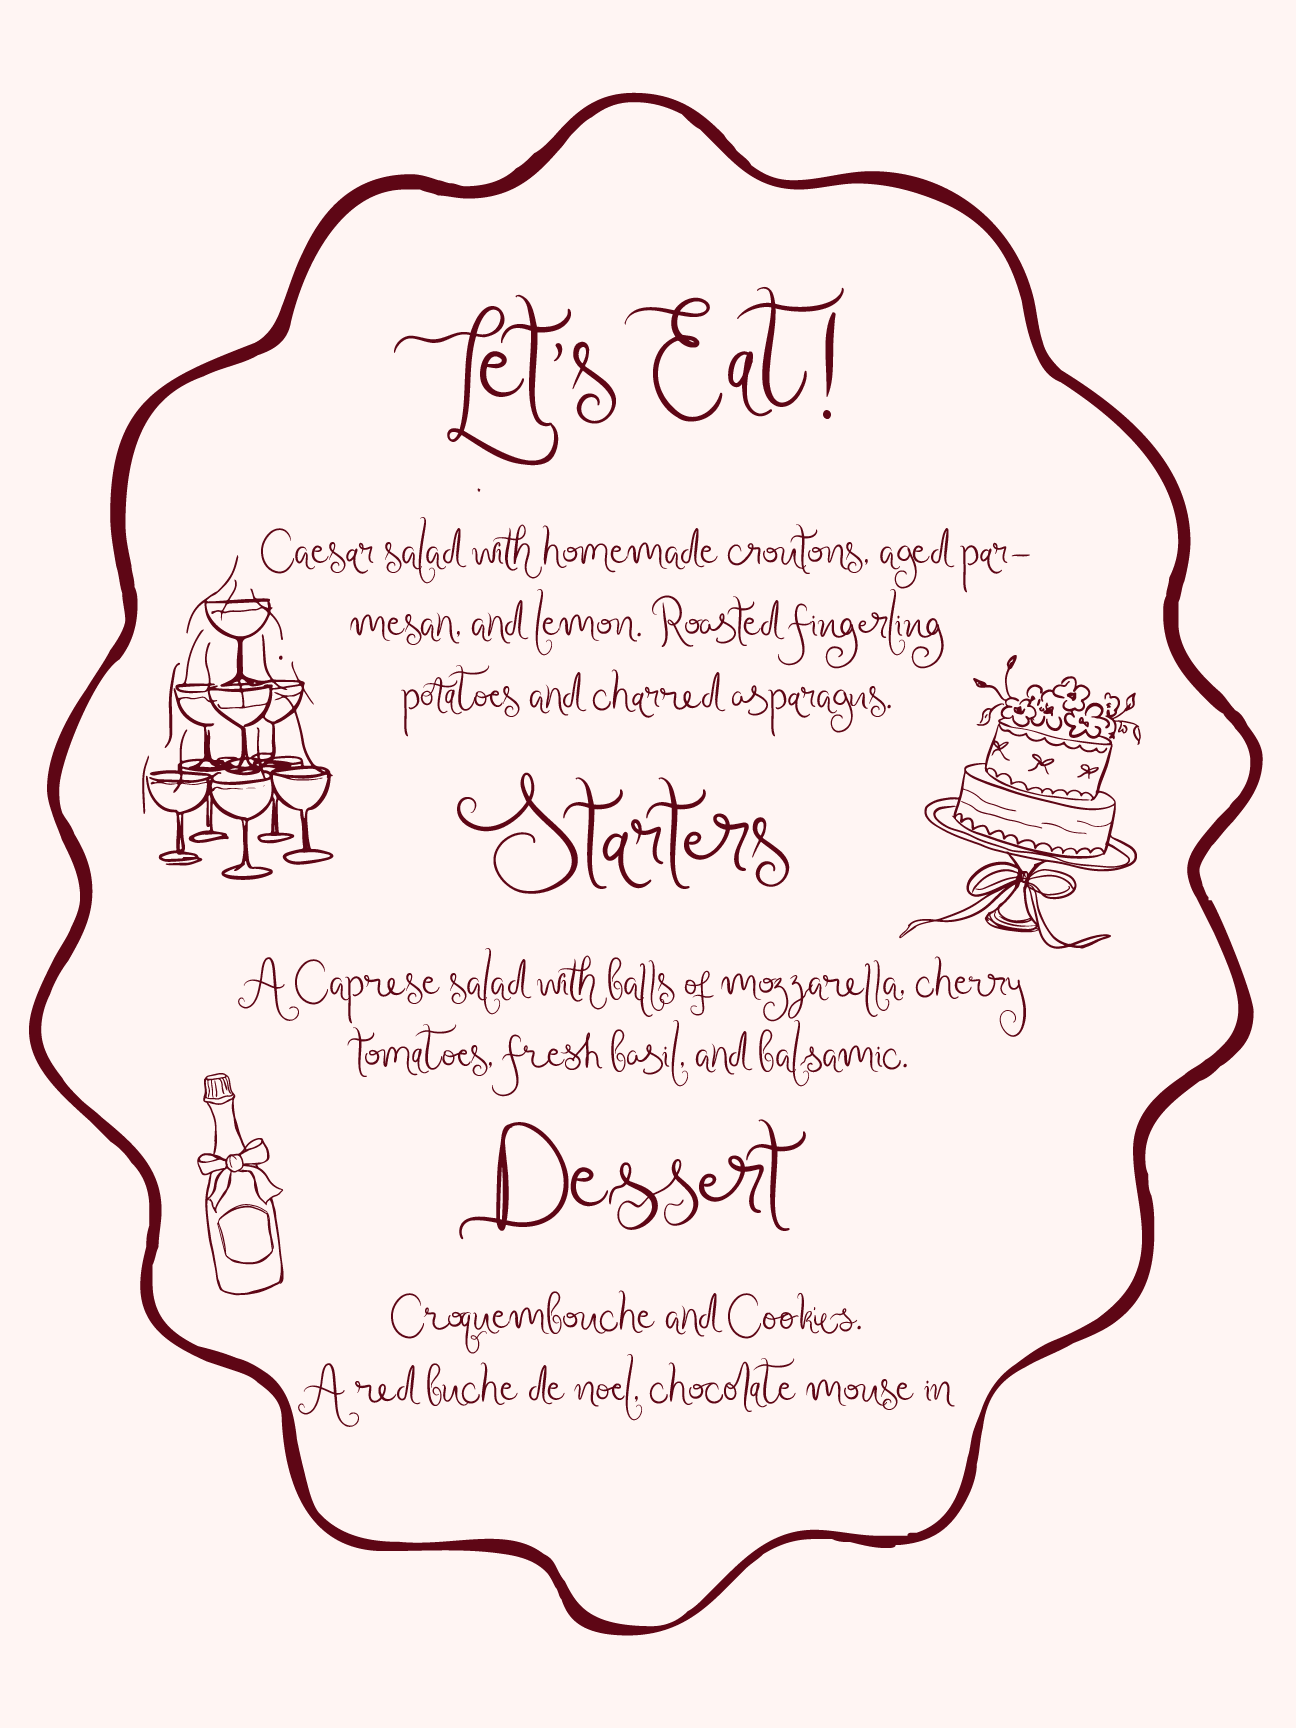 Let's Eat!
Caesar salad with homemade croutons, aged par-
mesan, and lemon. Roasted fingerling
potatoes and charred asparagus.
Starters
A Caprese salad with balls of mozzarella, cherry
tomatoes, fresh basil, and balsamic.
Dessert
Croquembouche and Cookies.
A red buche de noel, chocolate mouse in